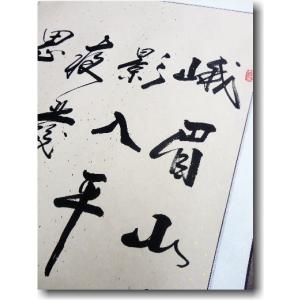 峨眉山
影入平
夜發
思